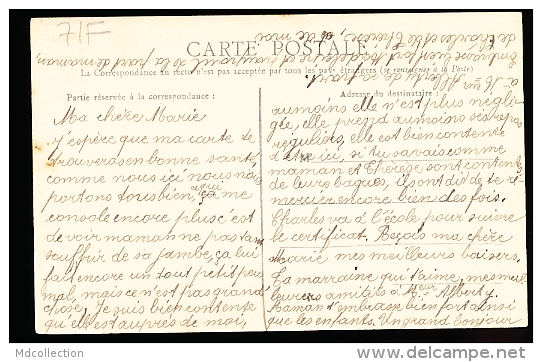 71F
CARTE POSTALE
La Correspondance au recto n'est pas acceptée par tous les pays étrangers (se renseigner à la Poste)
Partie réservée à la correspondance :
Ma chère Marie
J'espère que ma carte de
trouveras en bonne santé,
comme nous ici nous nous
portons tous bien, ce qui me
console encore plus c'est
de voir maman ne pas tant
souffrir de sa jambe, ça lui
fait encore un tout petit peu
mal, mais ce n'est pas grand
chose. Je suis bien contente
qu'elle est auprès de moi,
Adresse du destinataire :
au moins elle n'est plus négli-
gée, elle prend au moins ses repas
réguliers, elle est bien contente
d'être ici, si tu savais comme
maman et Thérèse sont contents
de leurs bagues, ils ont dit de te re-
mercier encore bien des fois.
Charles va à l'école pour suivre
le certificat. Reçois ma chère
Marie mes meilleurs baisers.
Ta marraine qui t'aime, mes meil-
leurs amitiés à Albert
Maman t'embrasse bien fort ainsi
que les enfants. Un grand bonjour
de la part de maman,
de Charles et de Thérèse, et de moi
Mdcollection
http://www.delcampe.net